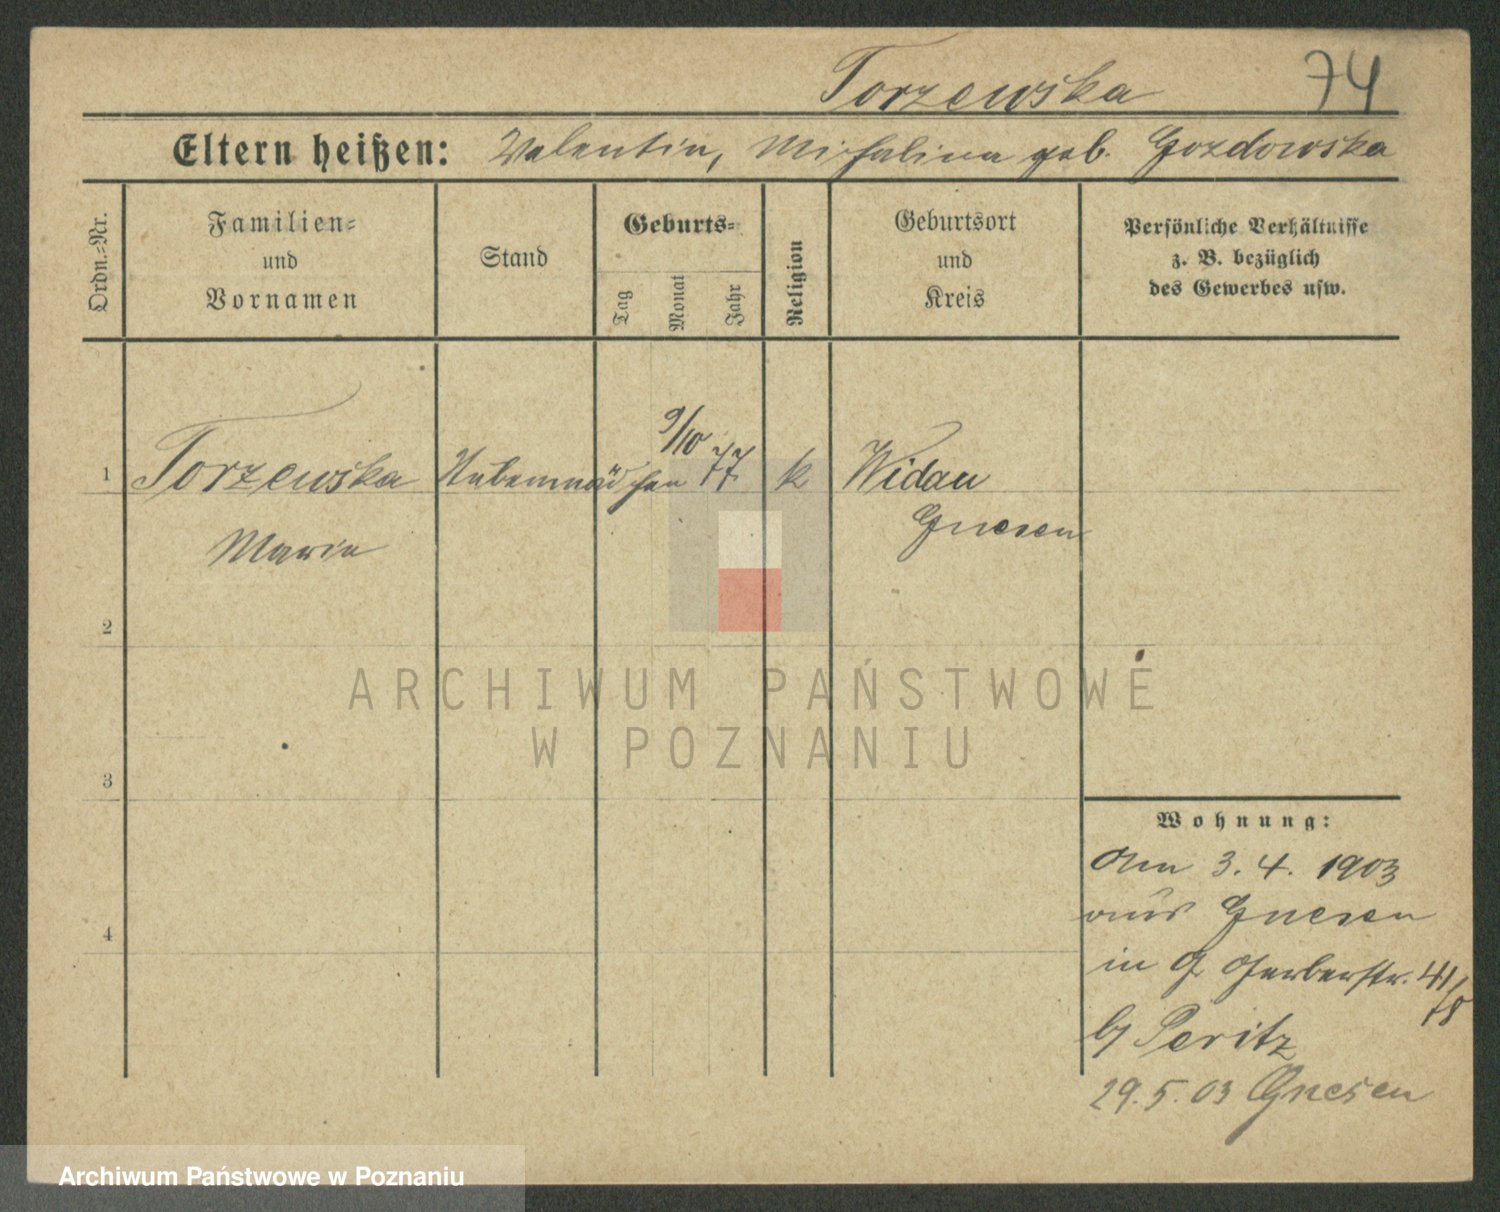 Torzewska 74
Eltern heißen: Valentin, Michalina geb. Gozdowska
Ordn.=Nr.
Familien=
und
Vornamen
Stand
Geburts=
Tag
Monat
Jahr
Religion
Geburtsort
und
Kreis
Persönliche Verhältnisse
z. B. bezüglich
des Gewerbes usw.
1 Torzewska Stubenmädchen 9/10 77 k Widau
Maria Gnesen
2
3
4
ARCHIWUM PAŃSTWOWE
W POZNANIU
Wohnung:
Am 3. 4. 1903
aus Gnesen
in G Gerberstr. 41/
b/ Peritz
29. 5. 03 Gnesen
Archiwum Państwowe w Poznaniu